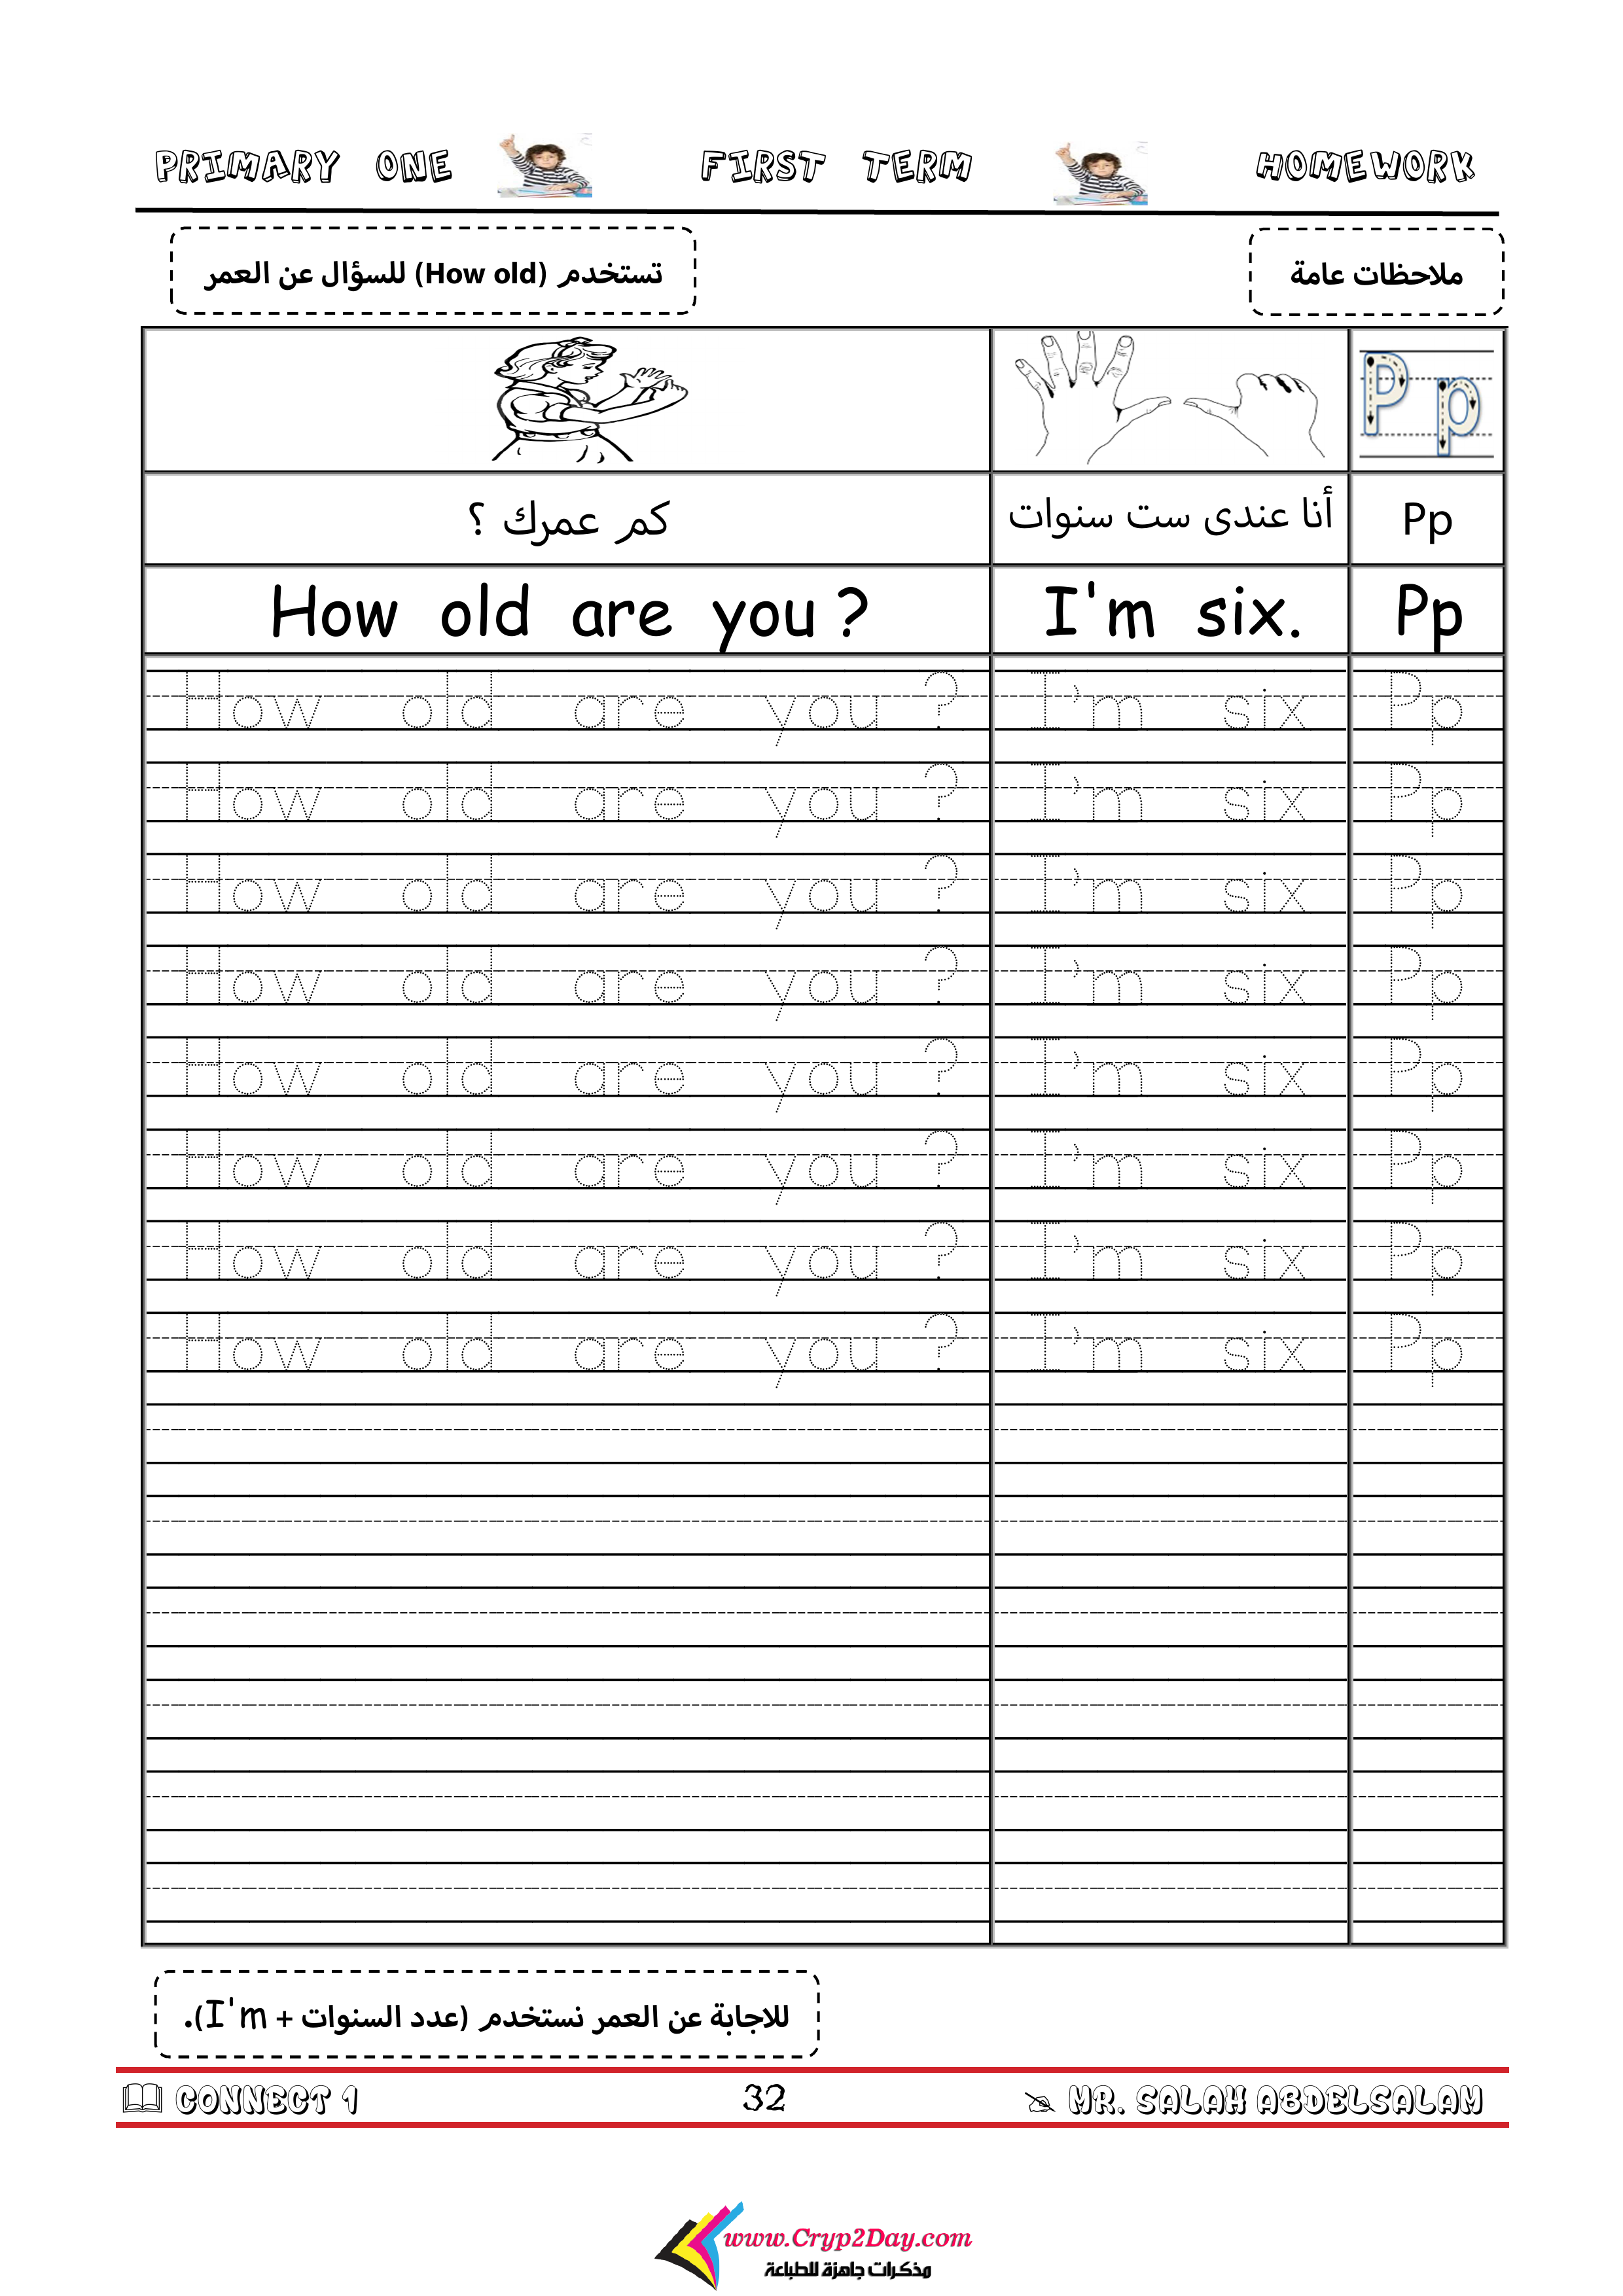 PRIMARY ONE FIRST TERM HOMEWORK
ملاحظات عامة
تستخدم (How old) للسؤال عن العمر
Pp
كم عمرك ؟ أنا عندى ست سنوات Pp
How old are you ? I'm six. Pp
How old are you ? I'm six Pp
How old are you ? I'm six Pp
How old are you ? I'm six Pp
How old are you ? I'm six Pp
How old are you ? I'm six Pp
How old are you ? I'm six Pp
How old are you ? I'm six Pp
How old are you ? I'm six Pp
للاجابة عن العمر نستخدم (عدد السنوات + I'm).
CONNECT 1 32 MR. SALAH ABDELSALAM
www.Cryp2Day.com
مذكرات جاهزة للطباعة